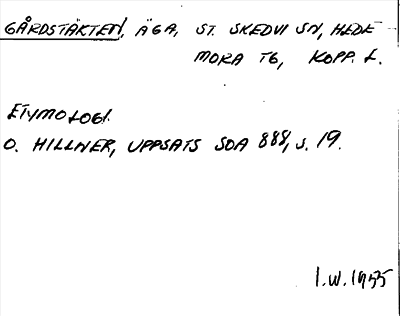 GÅRDSTÄKTEN, ÄGA, ST. SKEDVI SN, HEDE-
MORA TG, KOPP. L.
ETYMOLOGI.
O. HILLNER, UPPSATS SOA 888, s. 19.
I.W. 1955